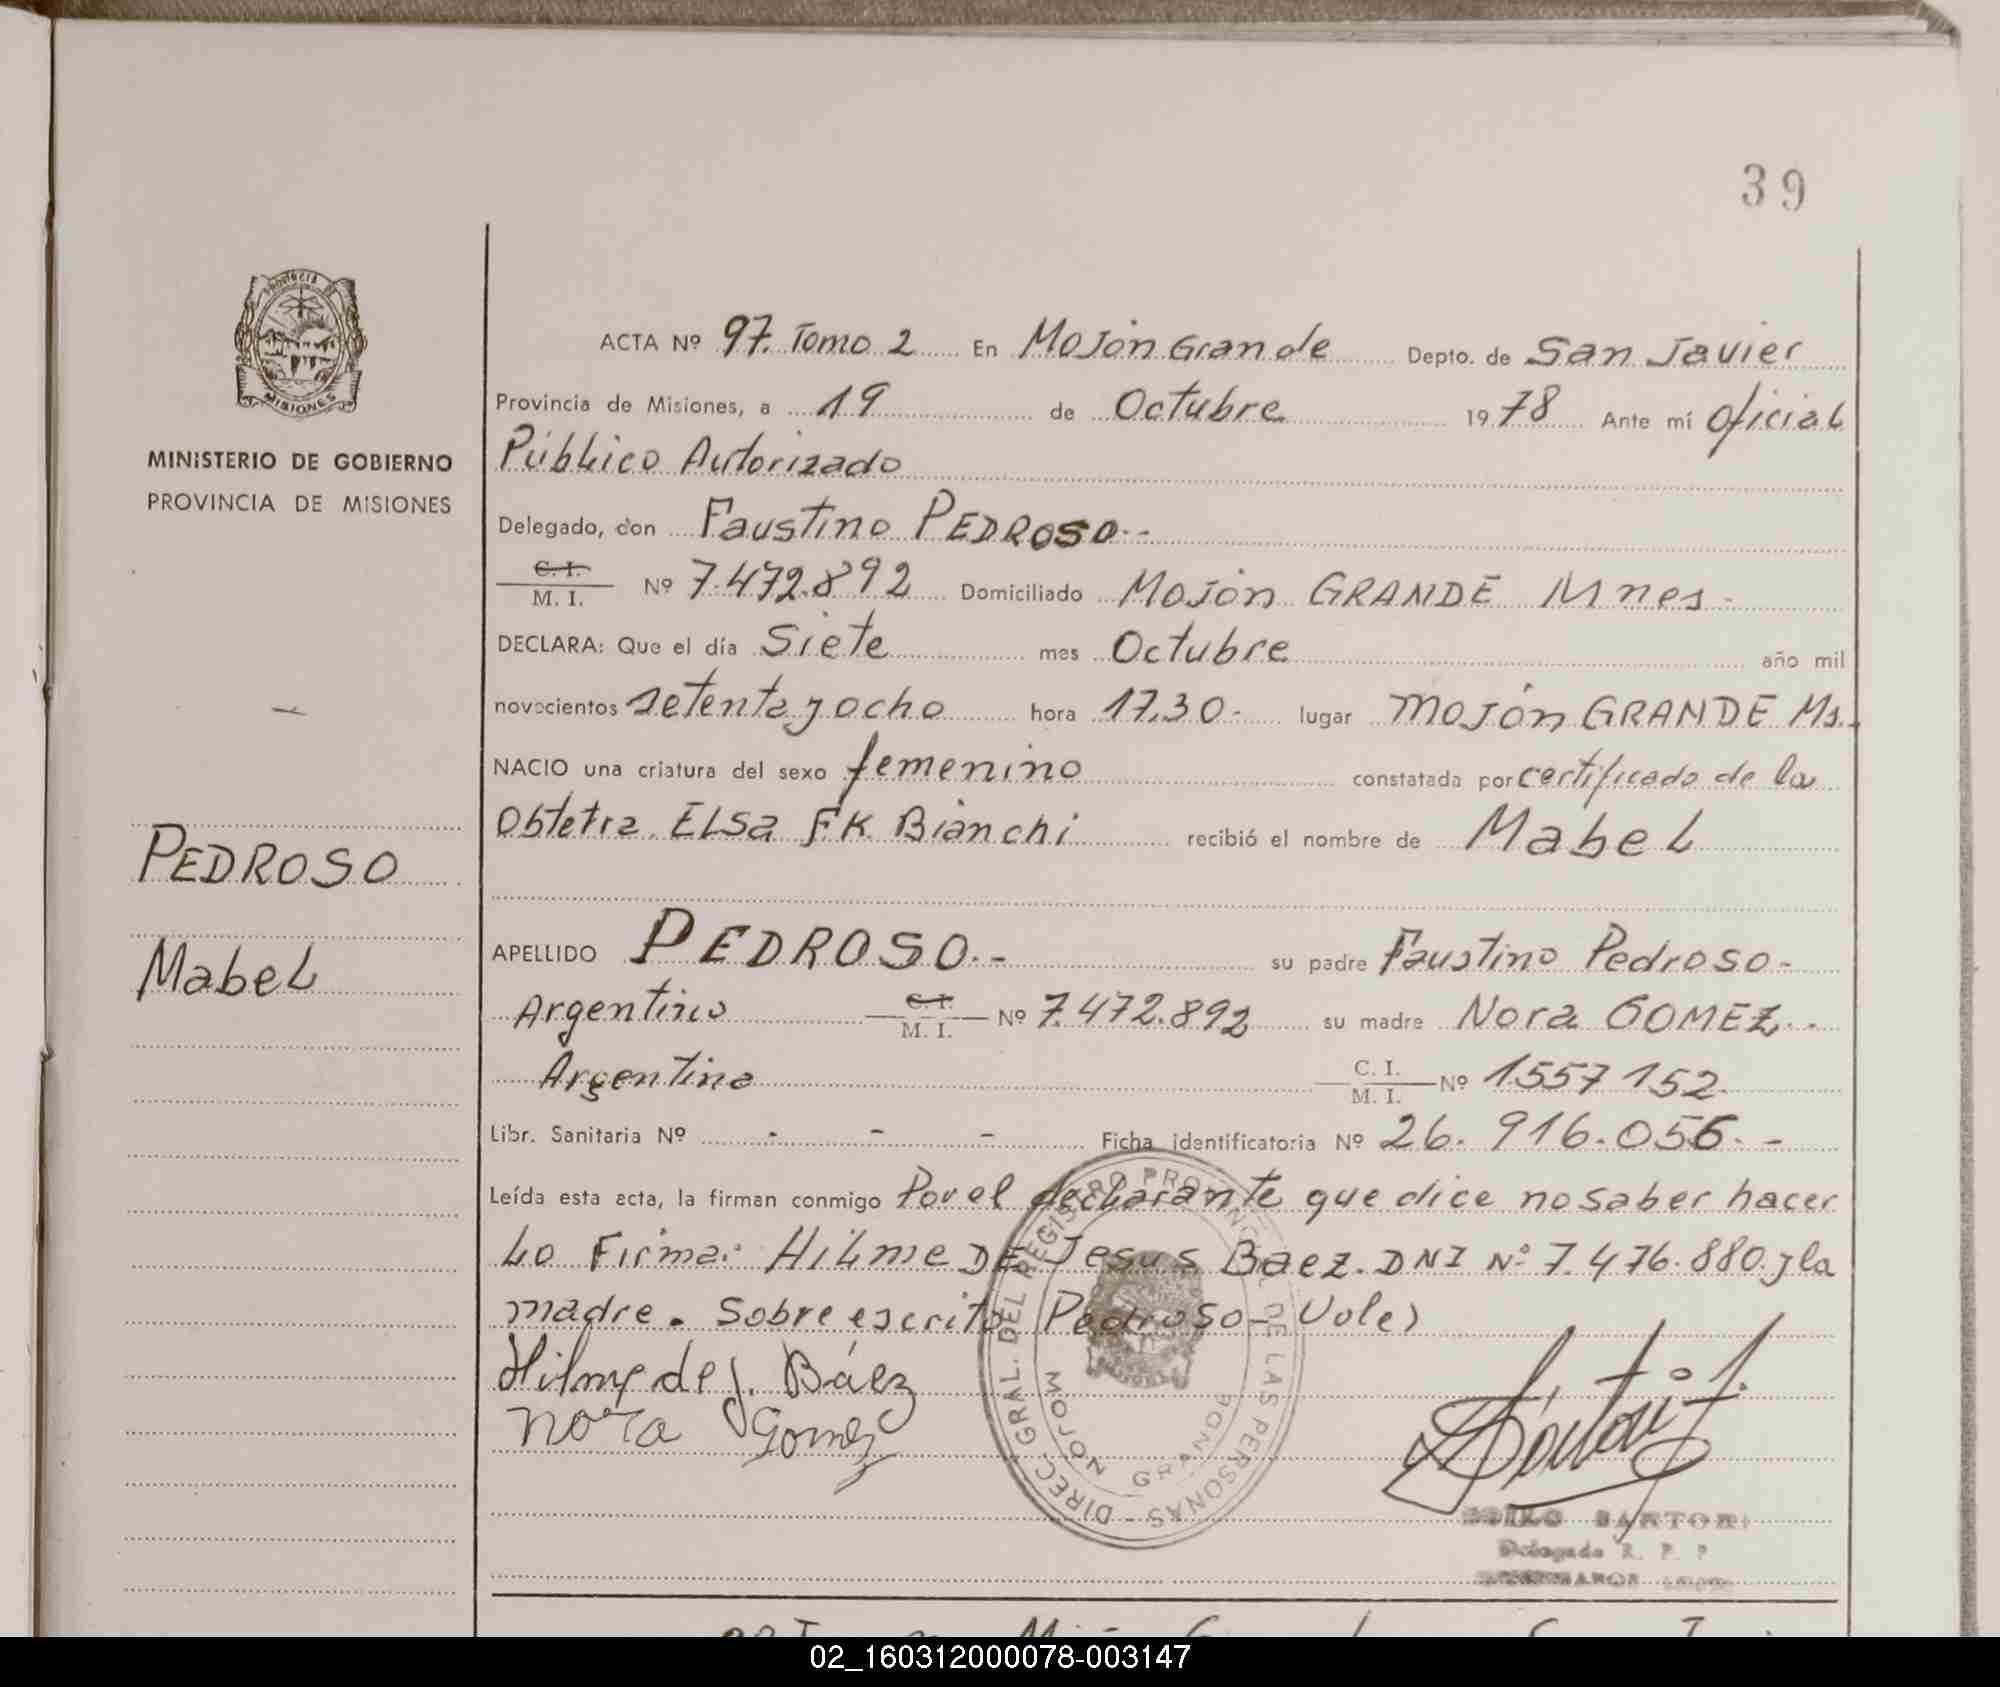 39
PROVINCIA DE
MISIONES
MINISTERIO DE GOBIERNO
PROVINCIA DE MISIONES
PEDROSO
Mabel
ACTA Nº 97. Tomo 2 En Mojón Grande Depto. de San Javier
Provincia de Misiones, a 19 de Octubre 1978 Ante mí Oficial
Público Autorizado
Delegado, don Faustino PEDROSO.-
C. I.
M. I. Nº 7.472.892 Domiciliado Mojón GRANDE Mnes -
DECLARA: Que el día Siete mes Octubre año mil
novecientos setenta y ocho hora 17.30.- lugar Mojón GRANDE Ms.
NACIO una criatura del sexo femenino constatada por certificado de la
Obtetra. ELSA F.K. Bianchi recibió el nombre de Mabel
APELLIDO PEDROSO.- su padre Faustino Pedroso-
Argentino C. I. M. I. Nº 7.472.892 su madre Nora GOMEZ.-
Argentina C. I. M. I. Nº 1557152.
Libr. Sanitaria Nº - - - Ficha identificatoria Nº 26.916.056.-
Leída esta acta, la firman conmigo Por el declarante que dice no saber hacer
lo Firma: Hilme DE Jesus Baez. DNI Nº 7.476.880. y la
madre. Sobre escrito Pedroso- Vale)
Hilme de J. Báez
Nora Gomez
DIREC. GRAL. DEL REGISTRO PROVINCIAL DE LAS PERSONAS -
MOJON GRANDE
SARTORI
Delegado R. P. P
02_160312000078-003147